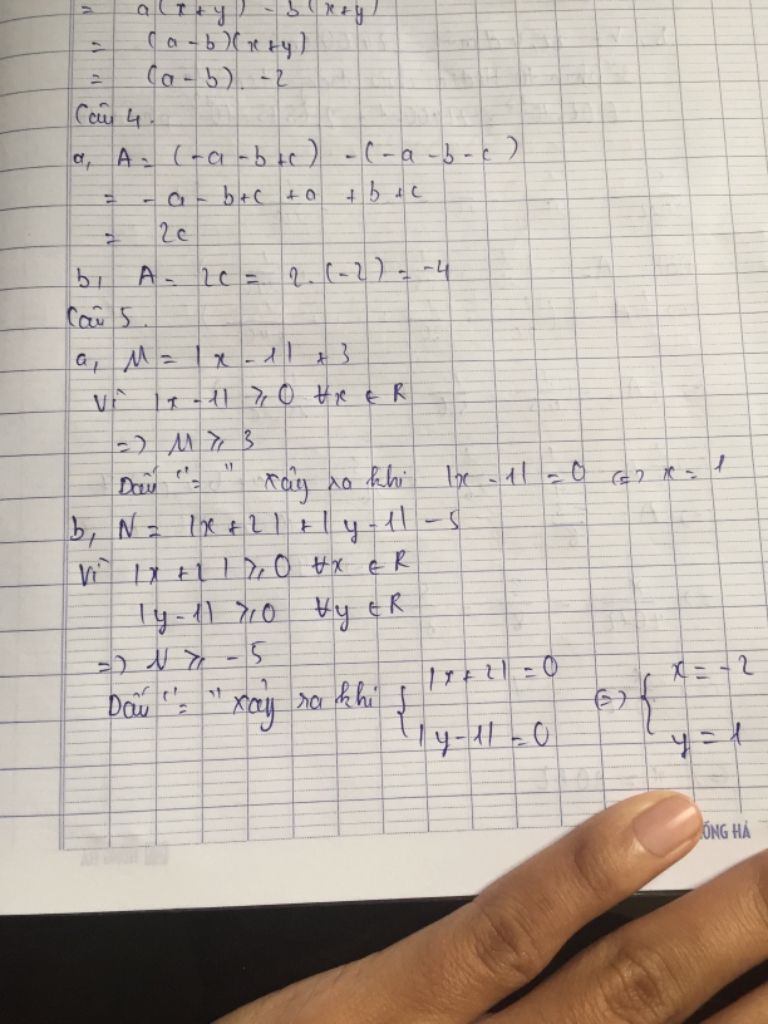 = a(x+y) - b(x+y)
= (a-b)(x+y)
= (a-b). -2
Câu 4.
a, A = (-a-b+c) -(-a-b-c)
= -a-b+c +a +b+c
= 2c
b, A = 2c = 2.(-2) = -4
Câu 5.
a, M = |x-1| +3
Vì |x-1| ≥ 0 ∀x ∈ R
=> M ≥ 3
Dấu "=" xảy ra khi |x-1| = 0 <=> x = 1
b, N = |x+2| + |y-1| - 5
Vì |x+2| ≥ 0 ∀x ∈ R
|y-1| ≥ 0 ∀y ∈ R
=> N ≥ -5
Dấu "=" xảy ra khi { |x+2| = 0 <=> { x = -2
|y-1| = 0 y = 1
ỐNG HÀ